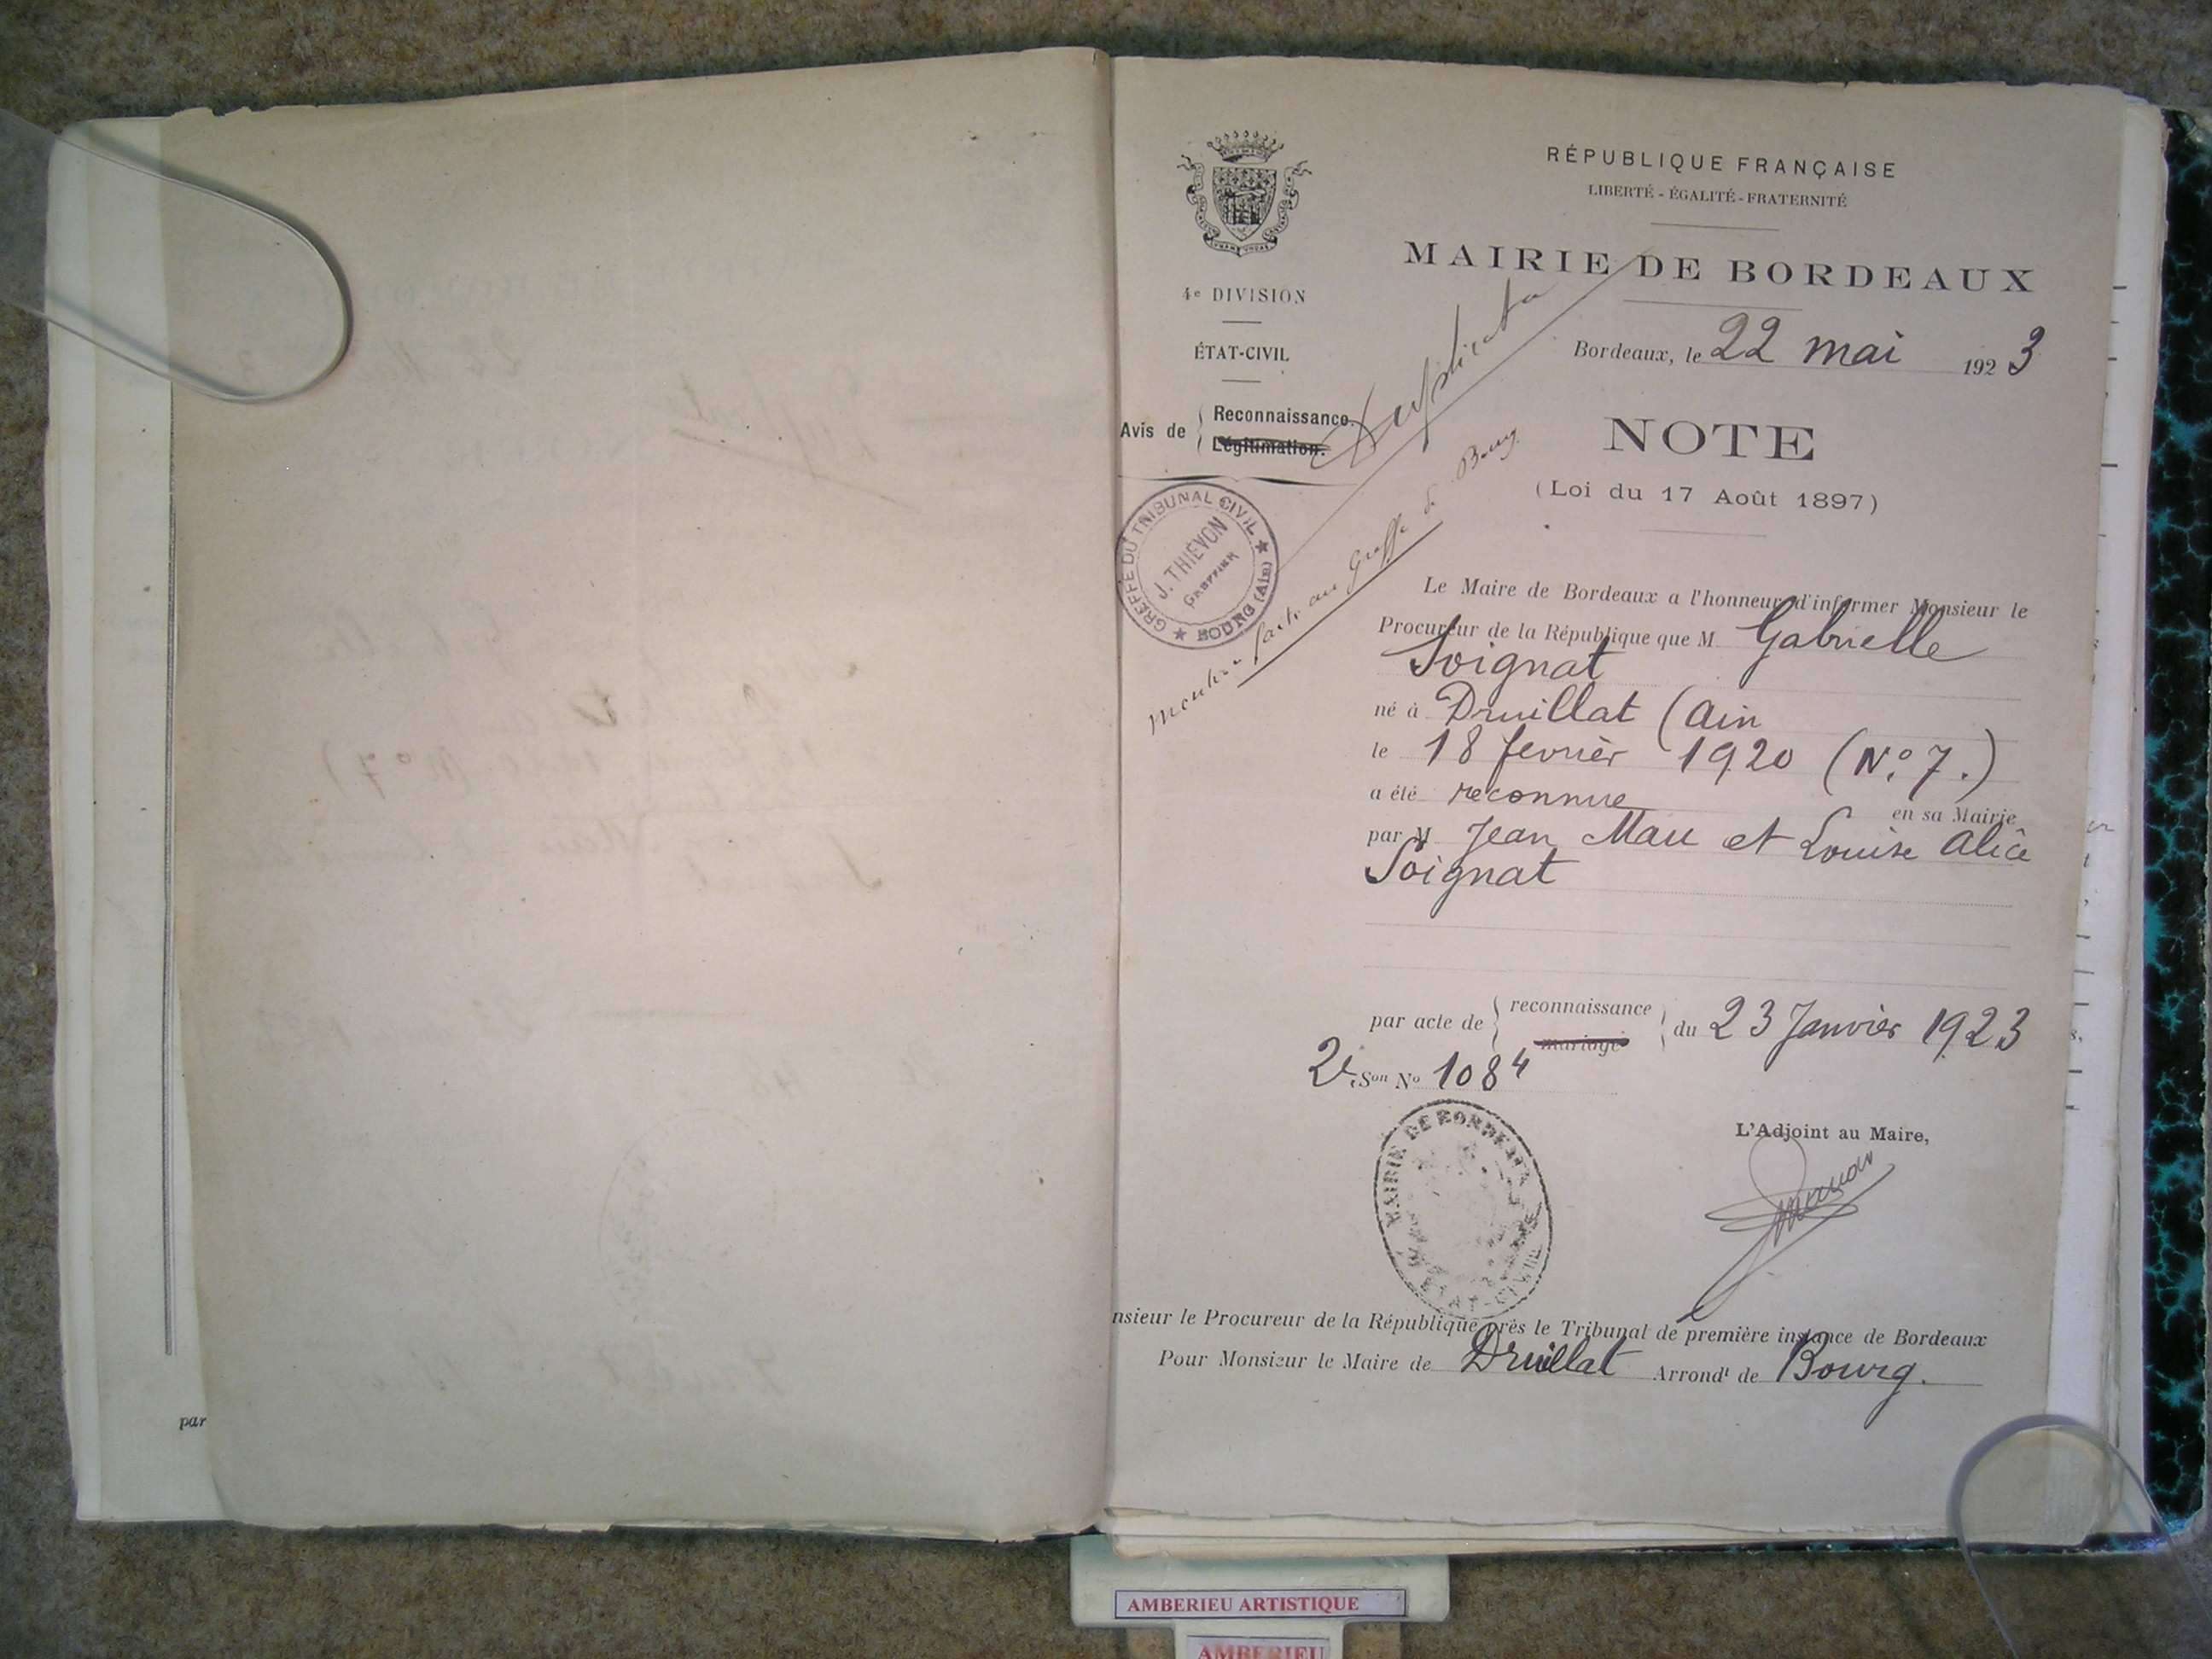 RÉPUBLIQUE FRANÇAISE
LIBERTÉ - ÉGALITÉ - FRATERNITÉ
MAIRIE DE BORDEAUX
4e DIVISION
ÉTAT-CIVIL
Bordeaux, le 22 mai 1923
Avis de { Reconnaissance.
Légitimation.
Duplicata
NOTE
(Loi du 17 Août 1897)
GREFFE DU TRIBUNAL CIVIL ★ BOURG (Ain) ★
J. THIÉVON
GREFFIER
mention faite au Greffe de Bourg
Le Maire de Bordeaux a l'honneur d'informer Monsieur le
Procureur de la République que M Gabrielle
Soignat
né à Druillat (Ain
le 18 fevrièr 1920 (No. 7.)
a été reconnue en sa Mairie
par M Jean Marc et Louise Alice
Soignat
par acte de { reconnaissance
mariage } du 23 Janvièr 1923
2e. Son No 1084
MAIRIE DE BORDEAUX
ETAT-CIVIL
L'Adjoint au Maire,
nsieur le Procureur de la République près le Tribunal de première instance de Bordeaux
Pour Monsieur le Maire de Druillat Arrondt de Bourg.
par
AMBERIEU ARTISTIQUE
AMBERIEU